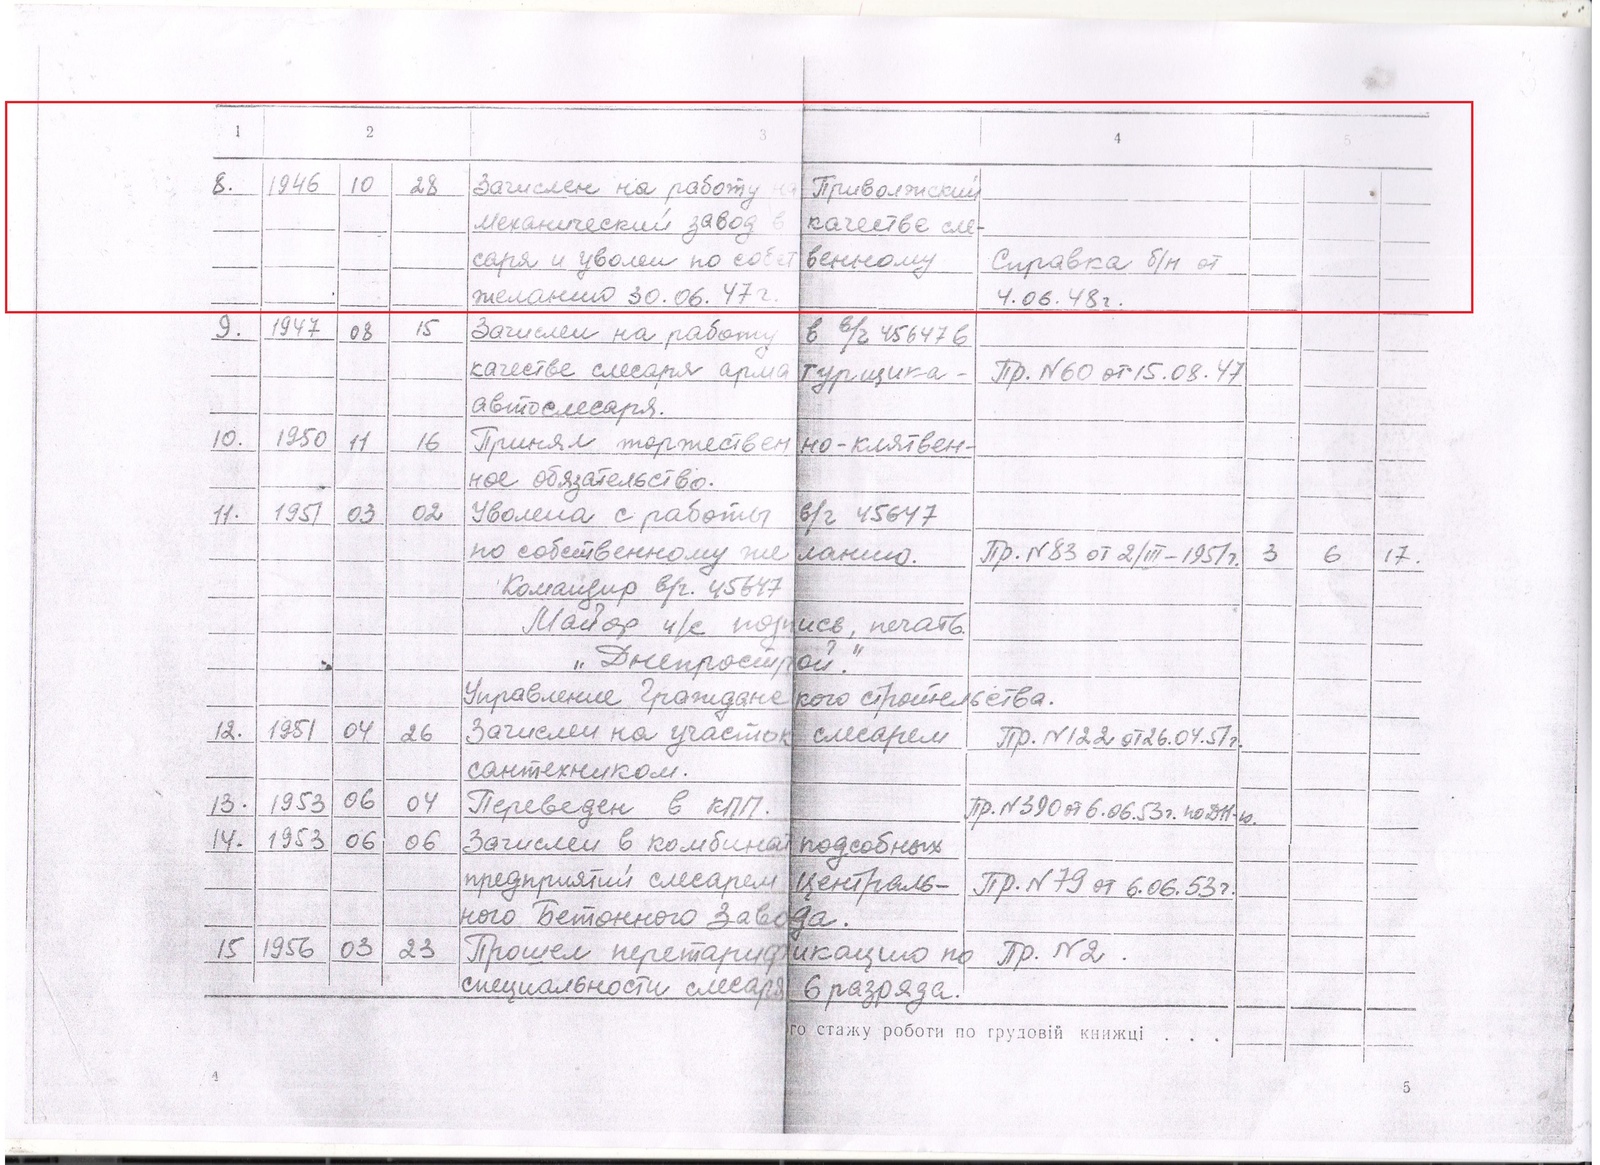 1 2 3 4 5
8. 1946 10 28 Зачислен на работу на Приволжский
механический завод в качестве сле-
саря и уволен по собственному Справка б/н от
желанию 30.06.47г. 4.06.48г.
9. 1947 08 15 Зачислен на работу в в/ч 45647 в
качестве слесаря арматурщика - Пр. N60 от 15.08.47
автослесаря.
10. 1950 11 16 Принял торжественно-клятвен-
ное обязательство.
11. 1951 03 02 Уволена с работы в/ч 45647
по собственному желанию. Пр. N83 от 2/III-1951г. 3 6 17.
Командир в/ч. 45647
Майор и/с подпись, печать
„Днепрострой."
Управление Гражданского строительства.
12. 1951 04 26 Зачислен на участок слесарем Пр. N122 от 26.04.51г.
сантехником.
13. 1953 06 04 Переведен в КПП. Пр. N390 от 6.06.53г. по
14. 1953 06 06 Зачислен в комбинат подсобных
предприятий слесарем Централь- Пр. N79 от 6.06.53г.
ного Бетонного Завода.
15 1956 03 23 Прошел перетарификацию по Пр. N2.
специальности слесаря 6 разряда.
го стажу роботи по трудовій книжці . . .
4 5